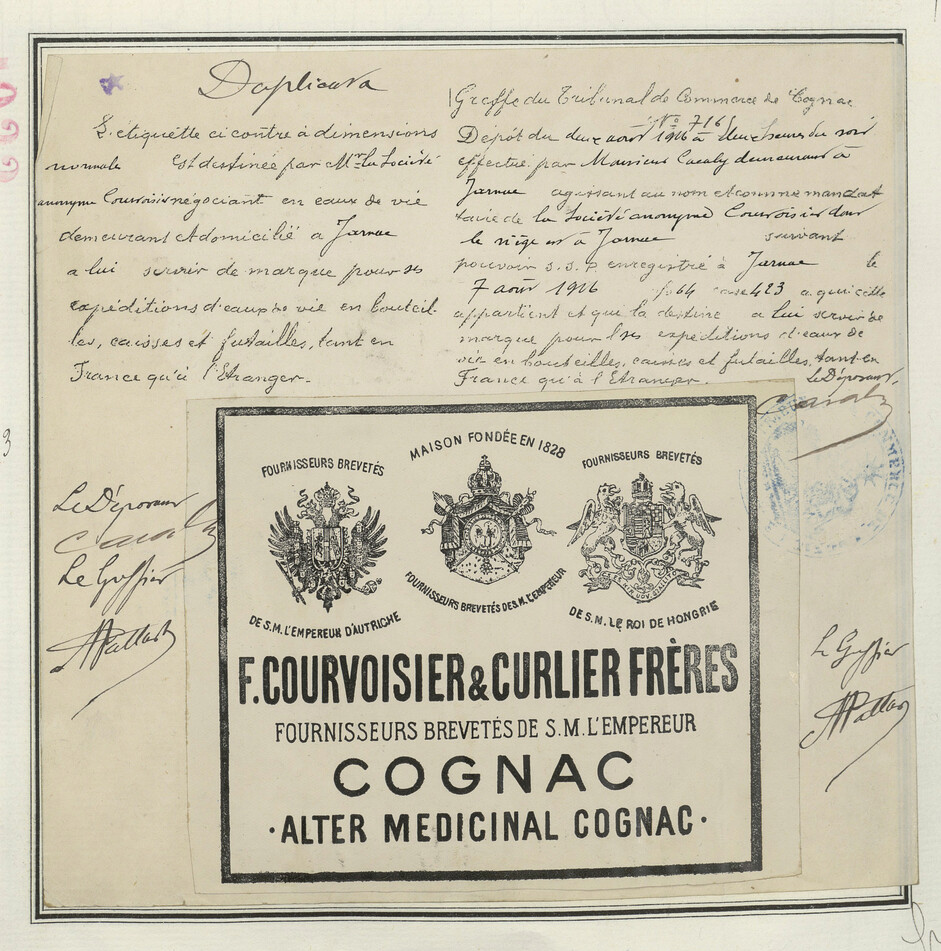 Duplicata
L'étiquette ci contre à dimensions
normale Est destinée par Mr. la Société
anonyme Courvoisier négociant en eaux de vie
demeurant et domicilié a Jarnac
a lui servir de marque pour ses
expéditions d'eaux de vie en bouteil-
les, caisses et futailles, tant en
France qu'à l'Etranger.
Le Déposant
Le Greffier
Greffe du Tribunal de Commerce de Cognac
No 716
Dépôt du deux aout 1916 à deux heures du soir
effectué par Monsieur demeurant à
Jarnac agissant au nom et comme mandat
taire de la Société anonyme Courvoisier dont
le siège est à Jarnac suivant
pouvoir s.s.p. enregistré à Jarnac le
7 aout 1916 fo 64 case 423 a qui elle
appartient et que la destine a lui servir de
marque pour ses expéditions d'eaux de
vie en bouteilles, caisses et futailles, tant en
France qu'à l'Etranger.
Le Déposant,
Le Greffier
MAISON FONDÉE EN 1828
FOURNISSEURS BREVETÉS
FOURNISSEURS BREVETÉS
FOURNISSEURS BREVETÉS DE S.M. L'EMPEREUR
DE S.M. L'EMPEREUR D'AUTRICHE
DE S.M. LE ROI DE HONGRIE
F. COURVOISIER & CURLIER FRÈRES
FOURNISSEURS BREVETÉS DE S.M. L'EMPEREUR
COGNAC
·ALTER MEDICINAL COGNAC·